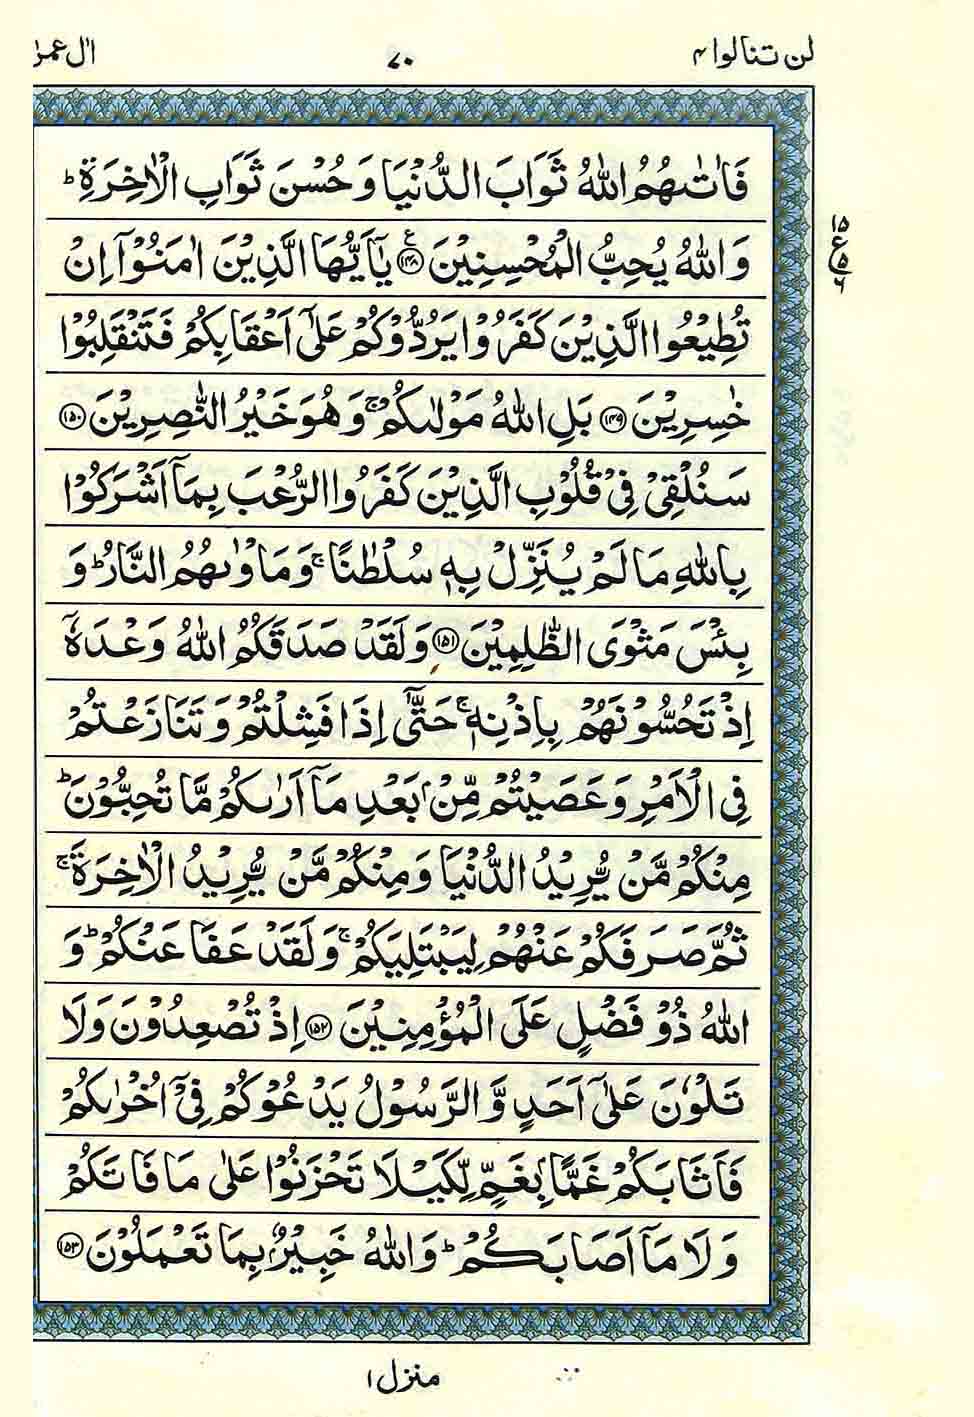 لن تنالوا ۴
۷۰
اٰل عمرٰ
فَاٰتٰىهُمُ اللّٰهُ ثَوَابَ الدُّنْيَا وَ حُسْنَ ثَوَابِ الْاٰخِرَةِؕ
وَ اللّٰهُ يُحِبُّ الْمُحْسِنِيْنَ ﴿۱۴۸﴾ۧ يٰۤاَيُّهَا الَّذِيْنَ اٰمَنُوْۤا اِنْ
۱۵
ع
۵
۶
تُطِيْعُوا الَّذِيْنَ كَفَرُوْا يَرُدُّوْكُمْ عَلٰۤى اَعْقَابِكُمْ فَتَنْقَلِبُوْا
خٰسِرِيْنَ ﴿۱۴۹﴾ بَلِ اللّٰهُ مَوْلٰىكُمْۚ وَ هُوَ خَيْرُ النّٰصِرِيْنَ ﴿۱۵۰﴾
سَنُلْقِيْ فِيْ قُلُوْبِ الَّذِيْنَ كَفَرُوا الرُّعْبَ بِمَاۤ اَشْرَكُوْا
بِاللّٰهِ مَا لَمْ يُنَزِّلْ بِهٖ سُلْطٰنًاۚ وَ مَاْوٰىهُمُ النَّارُؕ وَ
بِئْسَ مَثْوَى الظّٰلِمِيْنَ ﴿۱۵۱﴾ وَ لَقَدْ صَدَقَكُمُ اللّٰهُ وَعْدَهٗۤ
اِذْ تَحُسُّوْنَهُمْ بِاِذْنِهٖۚ حَتّٰۤى اِذَا فَشِلْتُمْ وَ تَنَازَعْتُمْ
فِي الْاَمْرِ وَ عَصَيْتُمْ مِّنْۢ بَعْدِ مَاۤ اَرٰىكُمْ مَّا تُحِبُّوْنَؕ
مِنْكُمْ مَّنْ يُّرِيْدُ الدُّنْيَا وَ مِنْكُمْ مَّنْ يُّرِيْدُ الْاٰخِرَةَۚ
ثُمَّ صَرَفَكُمْ عَنْهُمْ لِيَبْتَلِيَكُمْۚ وَ لَقَدْ عَفَا عَنْكُمْؕ وَ
اللّٰهُ ذُوْ فَضْلٍ عَلَى الْمُؤْمِنِيْنَ ﴿۱۵۲﴾ اِذْ تُصْعِدُوْنَ وَ لَا
تَلْوٗنَ عَلٰۤى اَحَدٍ وَّ الرَّسُوْلُ يَدْعُوْكُمْ فِيْۤ اُخْرٰىكُمْ
فَاَثَابَكُمْ غَمًّۢا بِغَمٍّ لِّكَيْلَا تَحْزَنُوْا عَلٰى مَا فَاتَكُمْ
وَ لَا مَاۤ اَصَابَكُمْؕ وَ اللّٰهُ خَبِيْرٌۢ بِمَا تَعْمَلُوْنَ ﴿۱۵۳﴾
منزل ۱